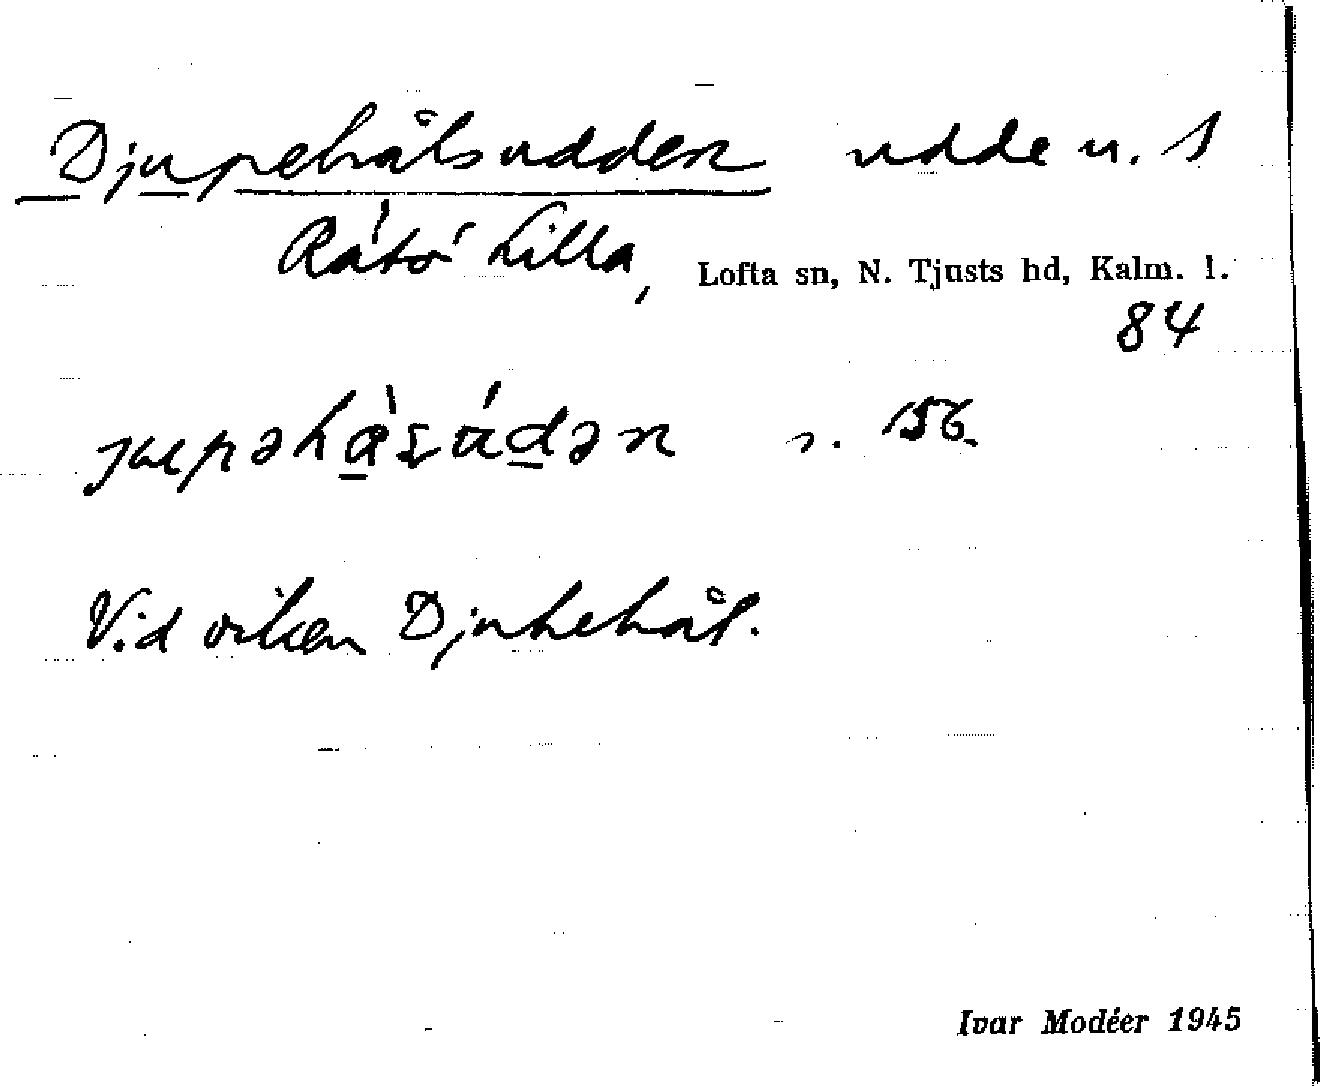 Djupehålsudden udde u. 1
Råtö Lilla, Lofta sn, N. Tjusts hd, Kalm. l.
84
s. 156.
Vid viken Djupehål.
Ivar Modéer 1945